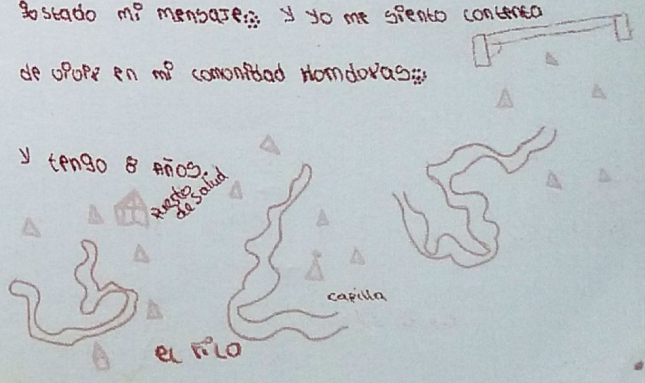 gostado mi mensaje;;; y yo me siento contenta
de vivir en mi comunidad Homdoras;;;
y tengo 8 años.
Puesto
de salud
capilla
el rilo